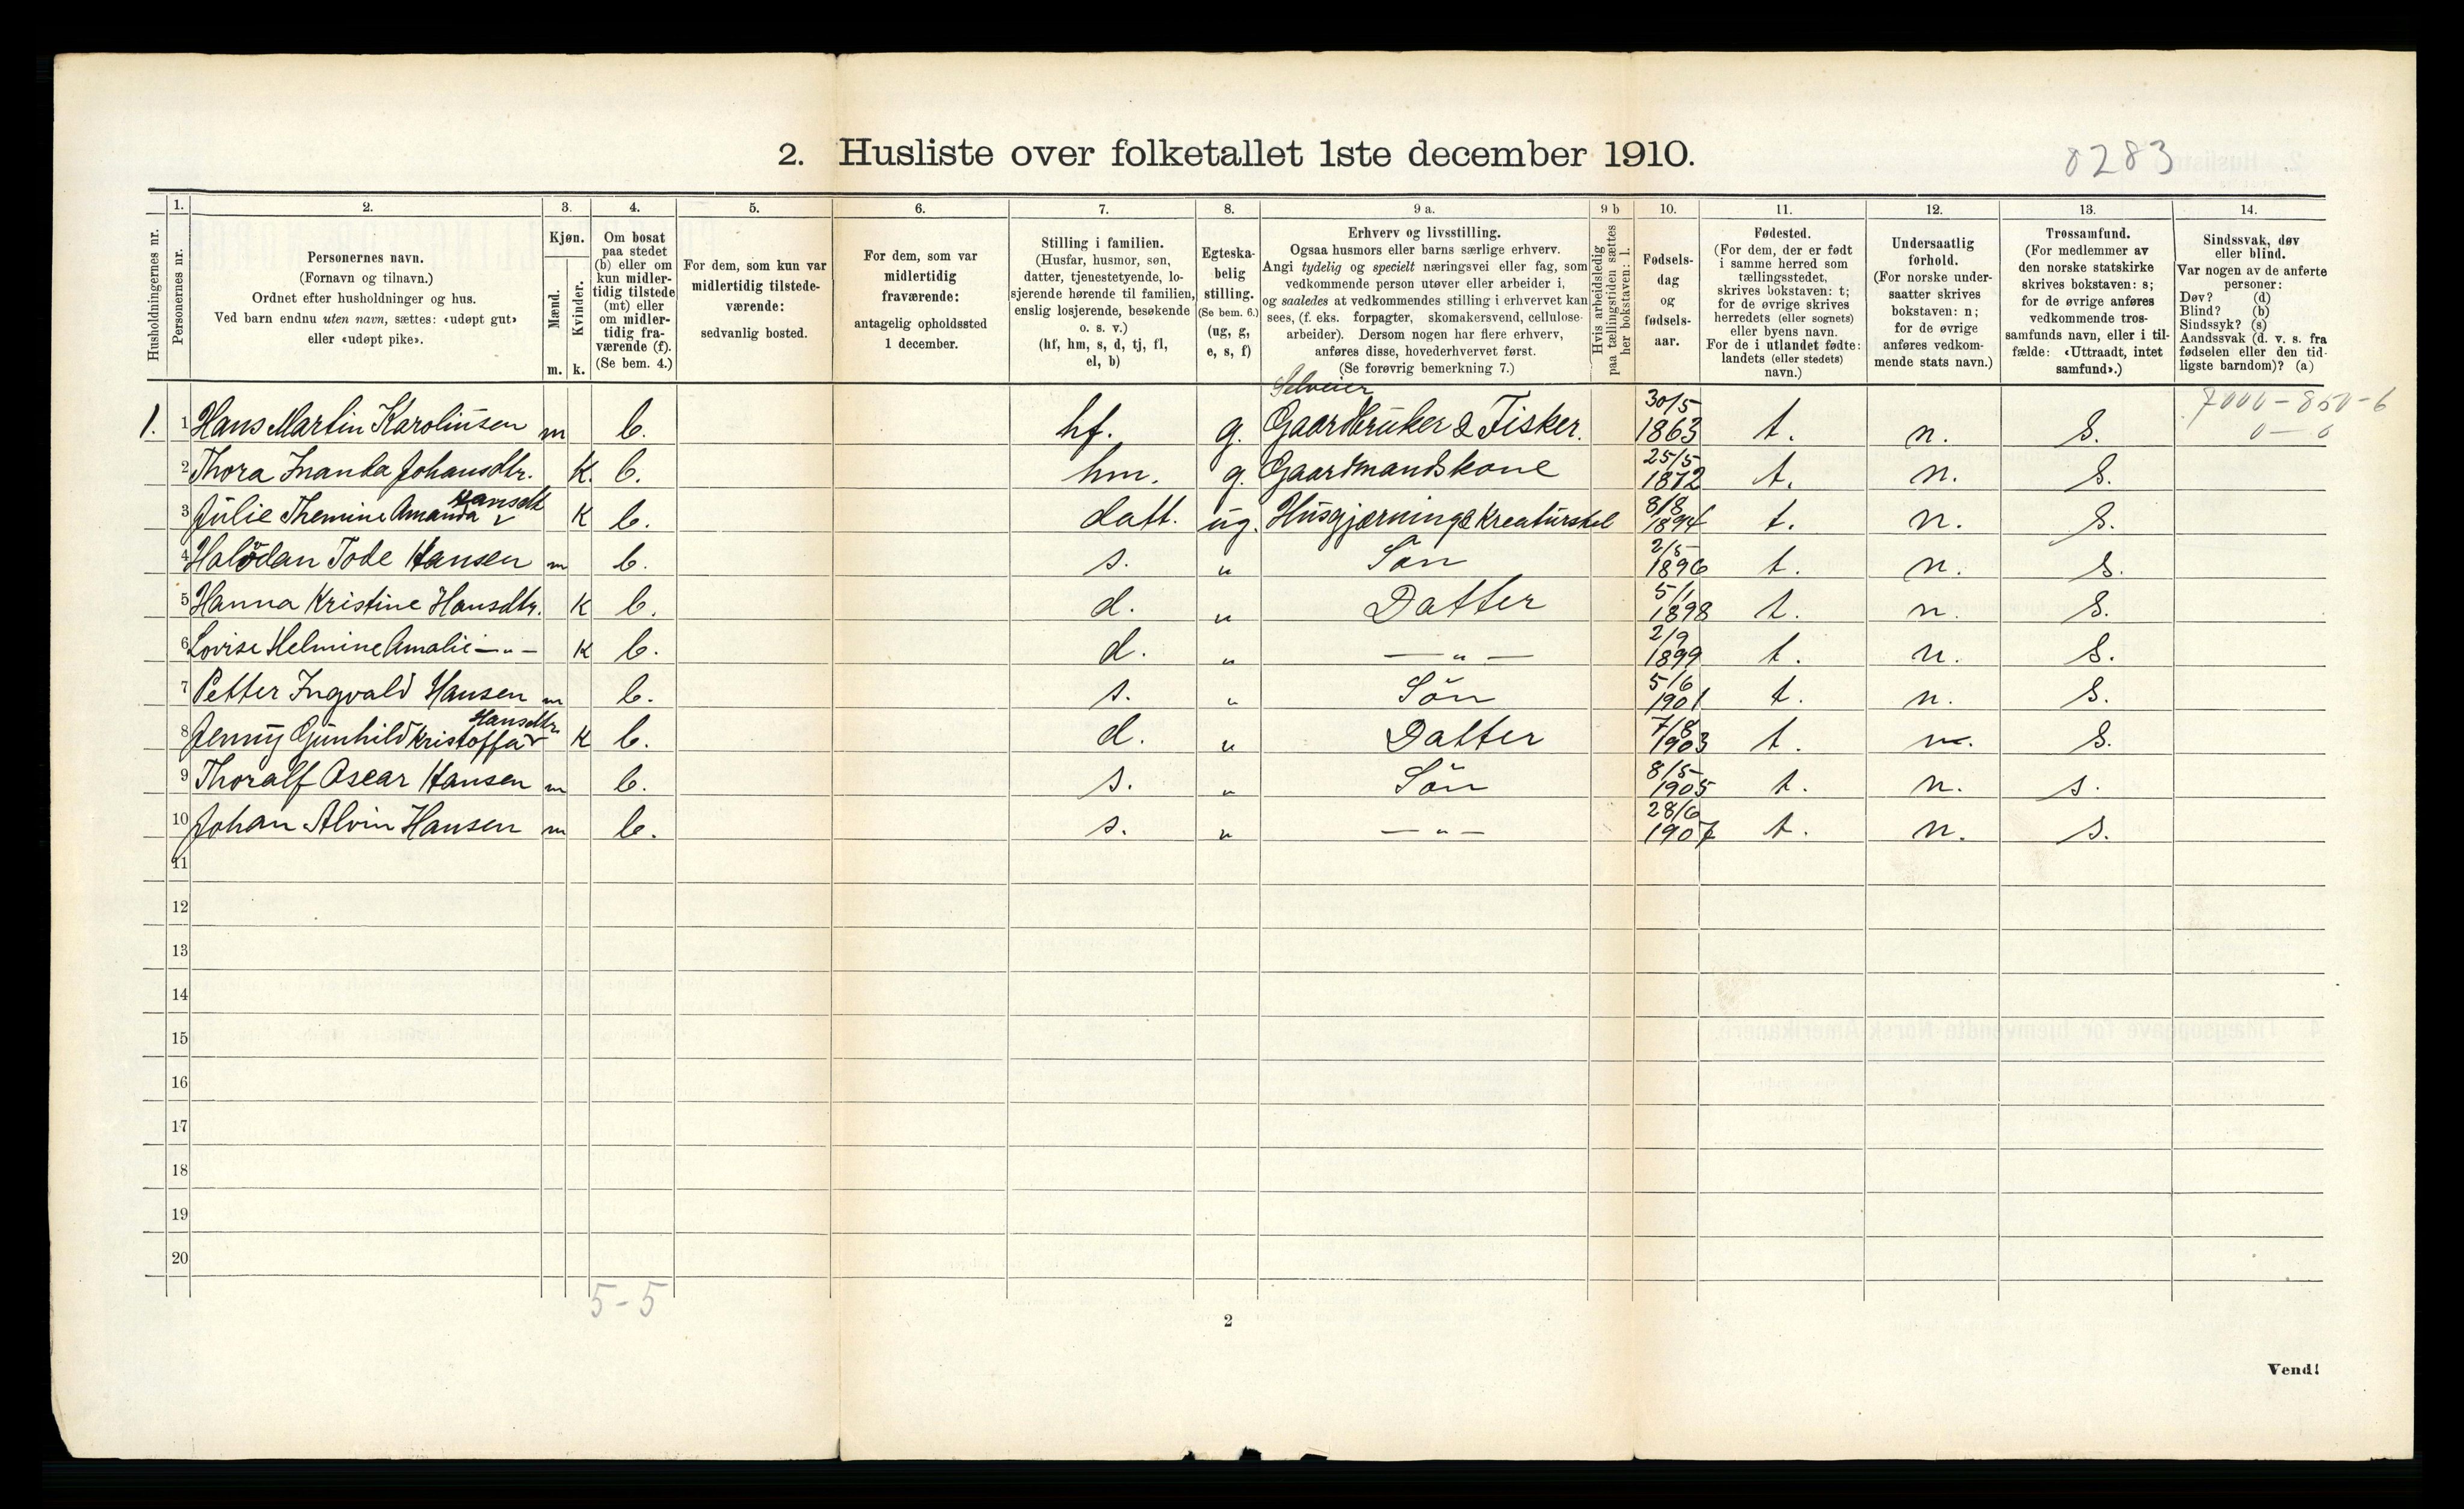 2. Husliste over folketallet 1ste december 1910.
8283
1. 2. 3. 4. 5. 6. 7. 8. 9 a. 9 b 10. 11. 12. 13. 14.
Husholdningernes nr.
Personernes nr.
Personernes navn.
(Fornavn og tilnavn.)
Ordnet efter husholdninger og hus.
Ved barn endnu uten navn, sættes: «udøpt gut»
eller «udøpt pike».
Kjøn.
Mænd.
Kvinder.
m. k.
Om bosat
paa stedet
(b) eller om
kun midler-
tidig tilstede
(mt) eller
om midler-
tidig fra-
værende (f).
(Se bem. 4.)
For dem, som kun var
midlertidig tilstede-
værende:
sedvanlig bosted.
For dem, som var
midlertidig
fraværende:
antagelig opholdssted
1 december.
Stilling i familien.
(Husfar, husmor, søn,
datter, tjenestetyende, lo-
sjerende hørende til familien,
enslig losjerende, besøkende
o. s. v.)
(hf, hm, s, d, tj, fl,
el, b)
Egteska-
belig
stilling.
(Se bem. 6.)
(ug, g,
e, s, f)
Erhverv og livsstilling.
Ogsaa husmors eller barns særlige erhverv.
Angi tydelig og specielt næringsvei eller fag, som
vedkommende person utøver eller arbeider i,
og saaledes at vedkommendes stilling i erhvervet kan
sees, (f. eks. forpagter, skomakersvend, cellulose-
arbeider). Dersom nogen har flere erhverv,
anføres disse, hovederhvervet først.
(Se forøvrig bemerkning 7.)
Hvis arbeidsledig
paa tællingstiden sættes
her bokstaven: l.
Fødsels-
dag
og
fødsels-
aar.
Fødested.
(For dem, der er født
i samme herred som
tællingsstedet,
skrives bokstaven: t;
for de øvrige skrives
herredets (eller sognets)
eller byens navn.
For de i utlandet fødte:
landets (eller stedets)
navn.)
Undersaatlig
forhold.
(For norske under-
saatter skrives
bokstaven: n;
for de øvrige
anføres vedkom-
mende stats navn.)
Trossamfund.
(For medlemmer av
den norske statskirke
skrives bokstaven: s;
for de øvrige anføres
vedkommende tros-
samfunds navn, eller i til-
fælde: «Uttraadt, intet
samfund».)
Sindssvak, døv
eller blind.
Var nogen av de anførte
personer:
Døv? (d)
Blind? (b)
Sindssyk? (s)
Aandssvak (d. v. s. fra
fødselen eller den tid-
ligste barndom)? (a)
Selveier 30/5 7000-850-6
1. 1 Hans Martin Karoliusen m b. hf. g. Gaardbruker & Fisker. 1863 t. n. S. 0-6
25/5
2 Thora Inanda Johansdtr. K. b. hm. g. Gaardmandskone 1872 t. n. S.
Hansdt 8/8
3 Julie Themine Amanda K b. datt. ug. Husgjærning & Kreaturstel 1894 t. n. S.
2/5
4 Halvdan Tode Hansen m b. s. " Søn 1896 t. n. S.
5/1
5 Hanna Kristine Hansdtr. K b. d. " Datter 1898 t. n. S.
2/9
6 Lovise Helmine Amalie —"— K b. d. " —"— 1899 t. n. S.
5/6
7 Petter Ingvald Hansen m b. s. " Søn 1901 t. n. S.
Hansdtr 7/8
8 Jenny Gunhild Kristoffa K b. d. " Datter 1903 t. n. S.
8/5
9 Thoralf Oscar Hansen m b. s. " Søn 1905 t. n. s.
28/6
10 Johan Alvin Hansen m b. s. " —"— 1907 t. n. s.
11
12
13
14
15
16
17
18
19
20
5-5
2
Vend!